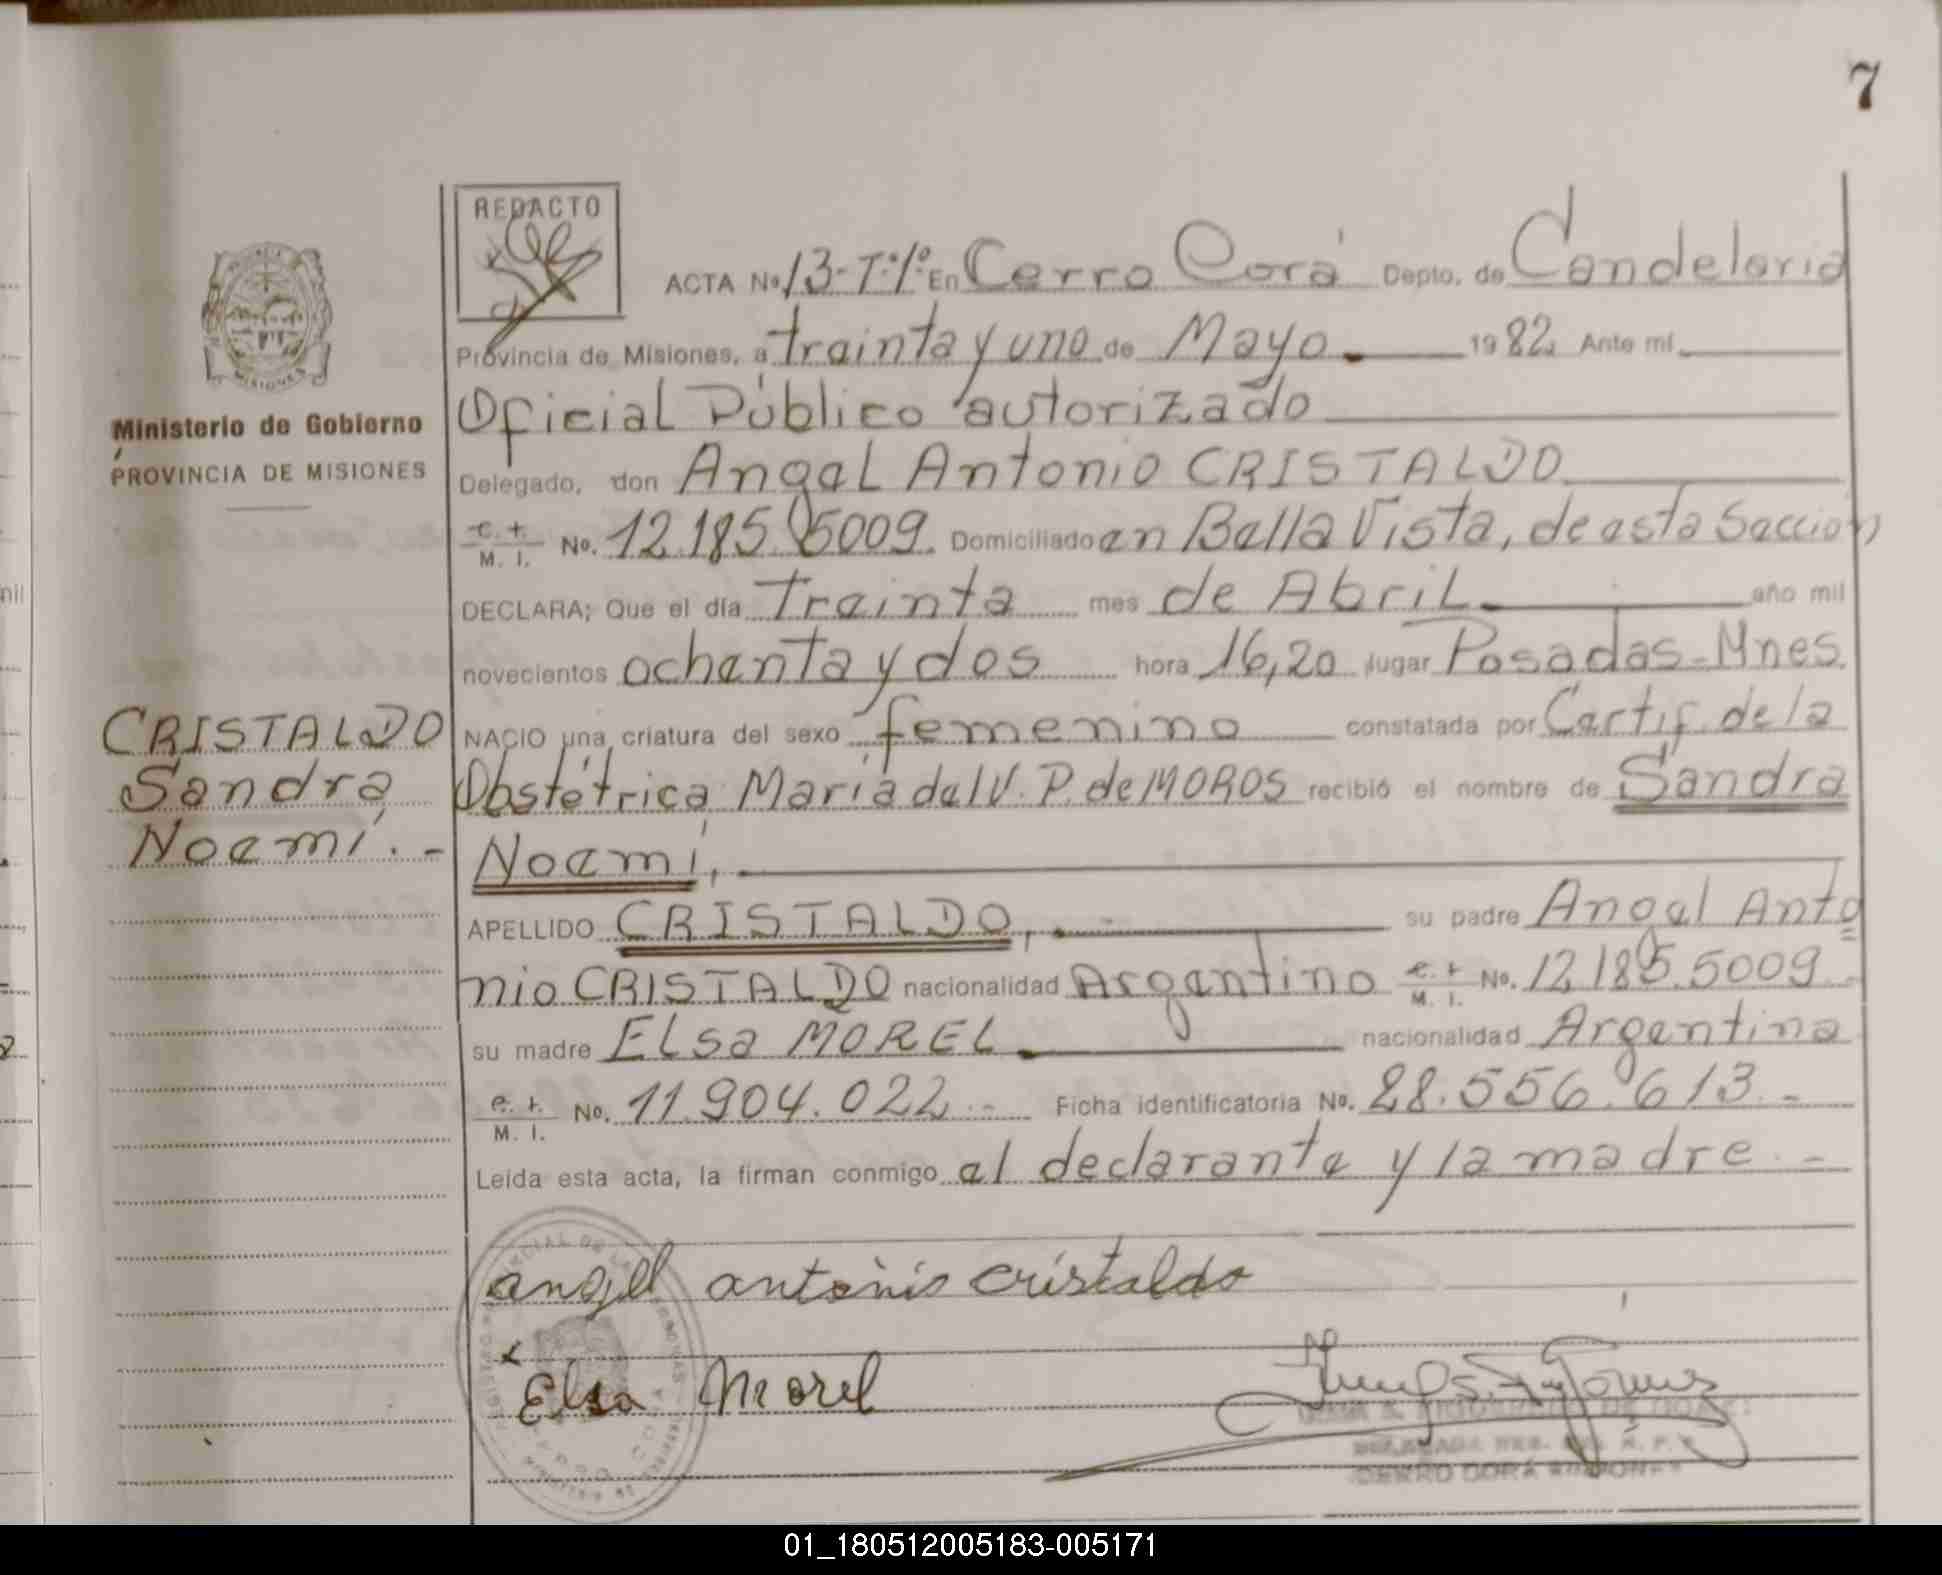 7
REDACTO
ACTA No. 13-Tº1º En Cerro Corá Depto. de Candelaria
Provincia de Misiones, a treinta y uno de Mayo.- 1982 Ante mí
Oficial Público autorizado
Delegado, don Angel Antonio CRISTALDO
M. I. No. 12.185.5009. Domiciliado en Bella Vista, de esta Sección
DECLARA; Que el día Treinta mes de Abril año mil
novecientos ochenta y dos hora 16,20 lugar Posadas-Mnes.
NACIO una criatura del sexo femenino constatada por Certif. de la
Obstétrica María del V. P. de MOROS recibió el nombre de Sandra
Noemí,
APELLIDO CRISTALDO, su padre Angel Anto
nio CRISTALDO nacionalidad Argentino M. I. No. 12.185.5009-
su madre Elsa MOREL nacionalidad Argentina
M. I. No. 11.904.022.- Ficha identificatoria No. 28.556.613.-
Leída esta acta, la firman conmigo el declarante y la madre.-
angel antonio cristaldo
x
Elsa Morel
CERRO CORÁ
MISIONES
Ministerio de Gobierno
PROVINCIA DE MISIONES
CRISTALDO
Sandra
Noemí.-
01_180512005183-005171